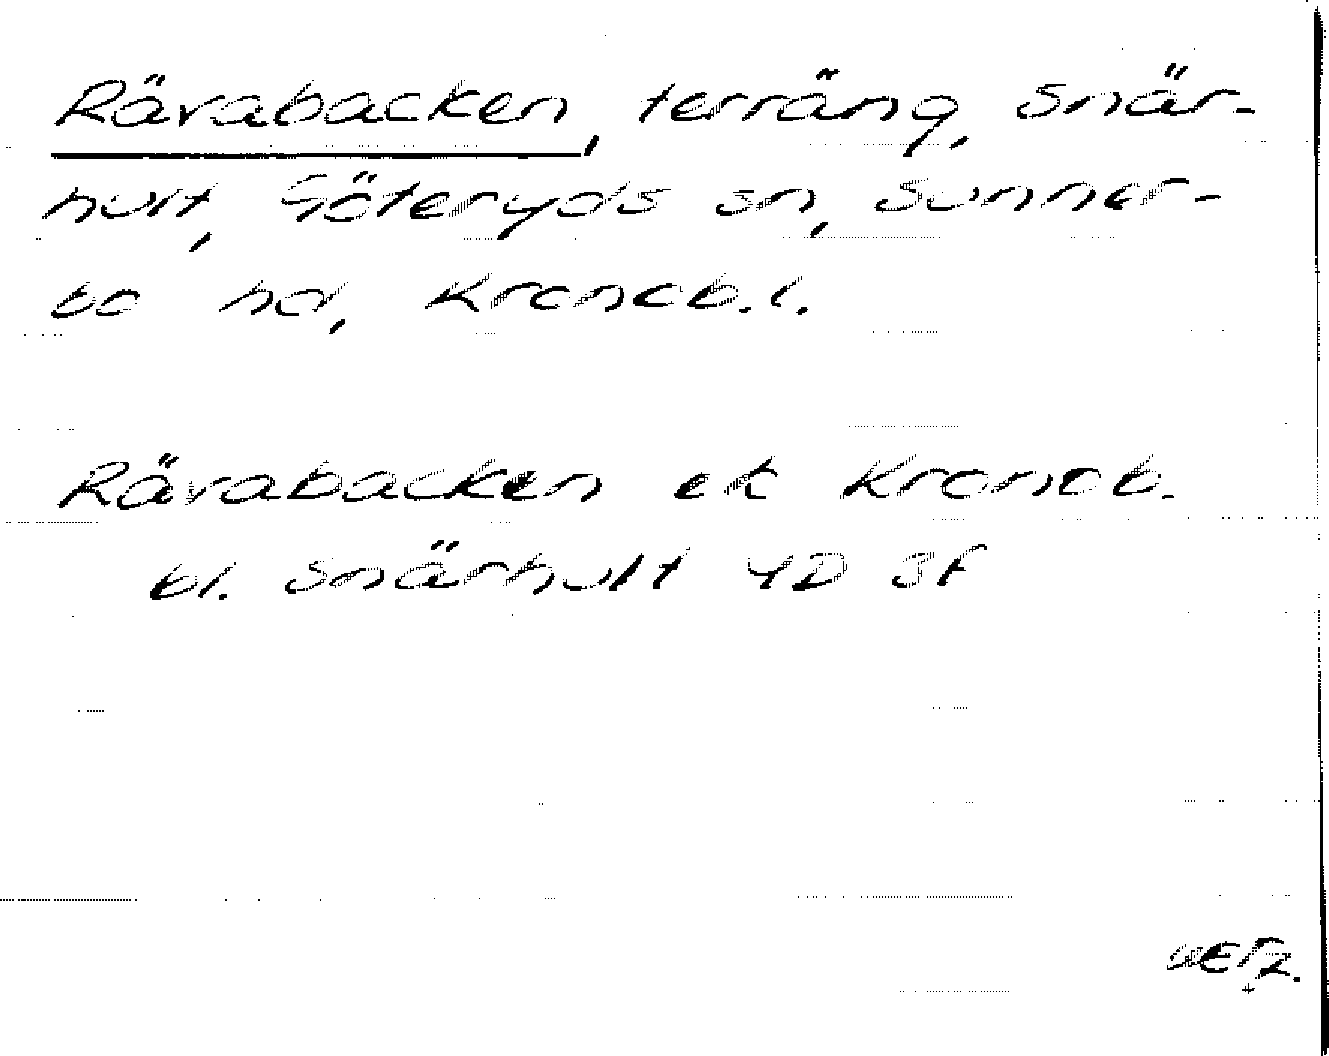 Rävabacken, terräng, Snär-
hult, Göteryds sn, Sunner-
bo hd, Kronob. l.
Rävabacken ek Kronob.
bl. Snärhult 4D 3f